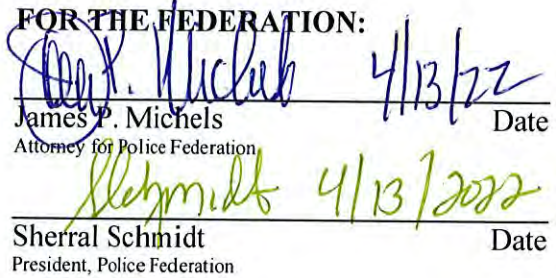 FOR THE FEDERATION:
James P. Michels 4/13/22
James P. Michels Date
Attorney for Police Federation
SSchmidt 4/13/2022
Sherral Schmidt Date
President, Police Federation